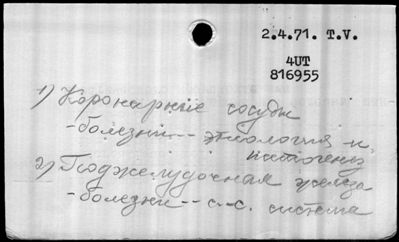 2.4.71. T.V.
4UT
816955
1) Коронарные сосуды
-болезни-- этиология и
патогенез
2) Поджелудочная железа
-болезни--с.-с. система